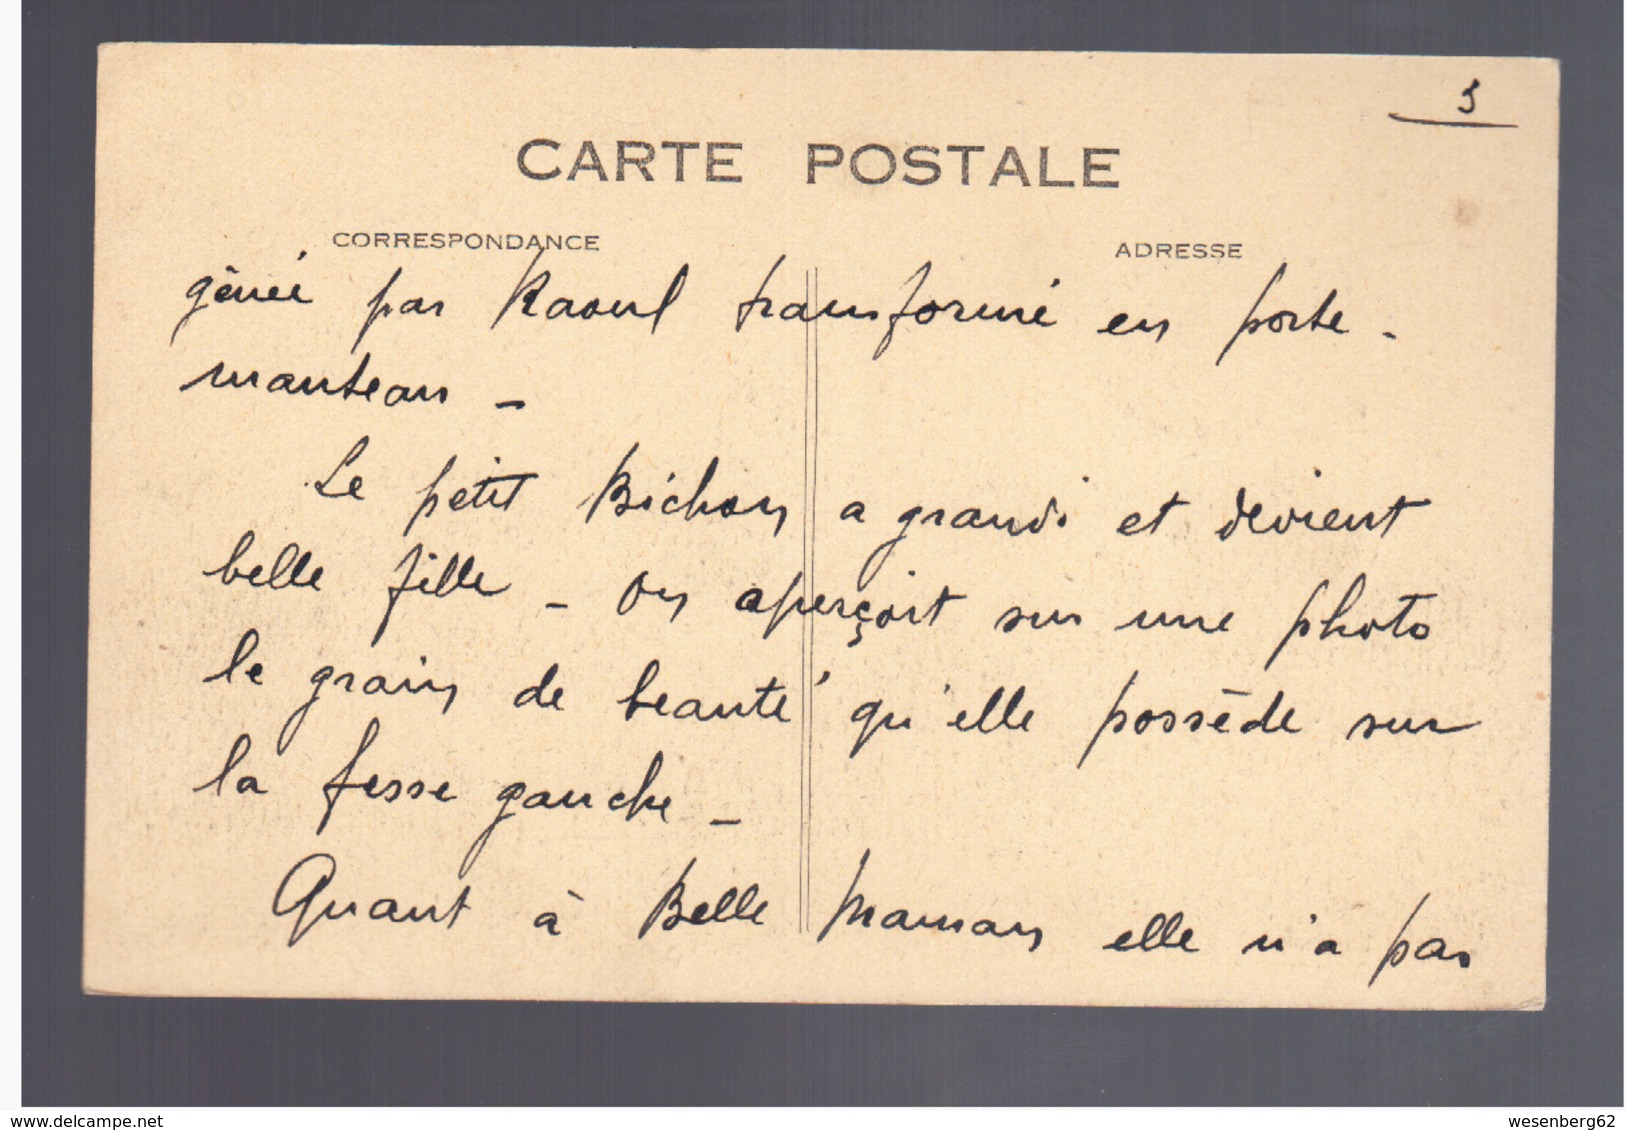 5
CARTE POSTALE
CORRESPONDANCE
ADRESSE
gênée par Raoul transformé en porte-
manteau -
Le petit Bichon a grandi et devient
belle fille - on aperçoit sur une photo
le grain de beauté qu'elle possède sur
la fesse gauche -
Quant à Belle Maman elle n'a pas
delcampe.net
wesenberg62